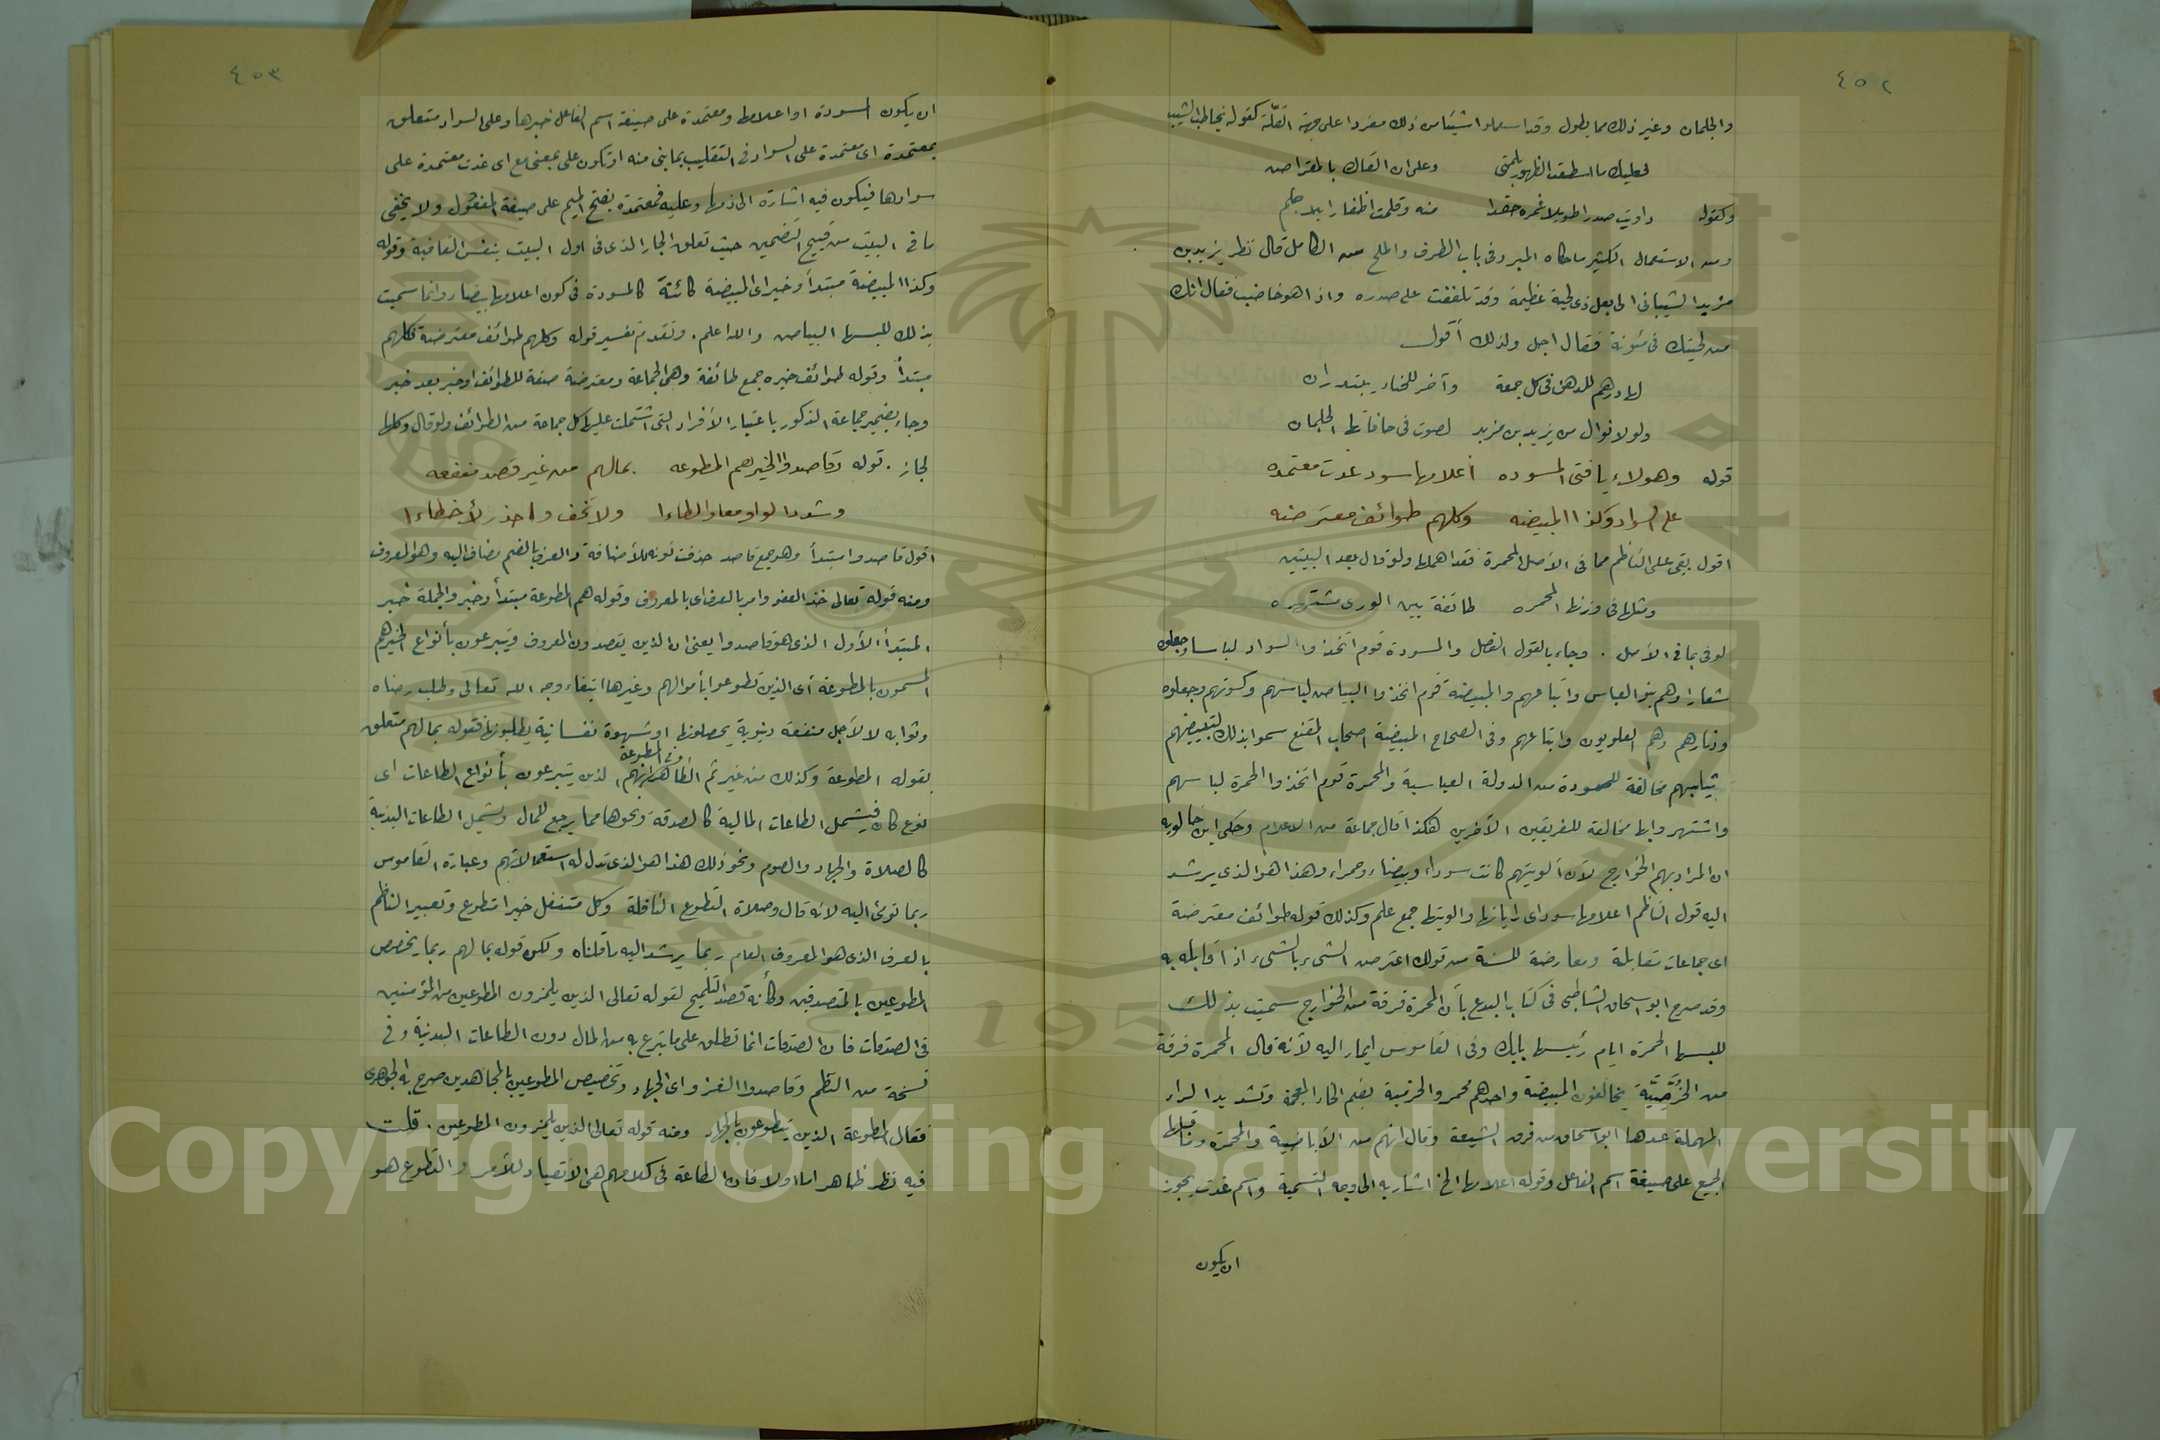 ٤٥٢
والجلمان وغير ذلك مما يطول وقد استعملوا شيئا من ذلك مفردا على جهة القلة كقوله يخاطب الشيب
فعليك ما اسطعت الظهور بلمتي وعلى ان القاك بالمقراض
وكقوله داويت صدرا طويلا غمره حقدا منه وقلمت اظفارا بلا جلم
ومن الاستعمال الكثير ما حكاه المبرد في باب الطرف والملح من الكامل قال نظر يزيد بن
مزيد الشيباني الى رجل ذي لحية عظيمة وقد تلففت على صدره واذا هو خاضب فقال انك
من لحيتك في مئونة فقال اجل ولذلك أقول
لها درهم للدهن في كل جمعة وآخر للحناء يبتدران
ولولا نوال من يزيد بن مزيد لصوت في حافاتها الجلمان
قوله وهولاء يا فتى المسوده أعلامها سود غدت معتمده
على السواد وكذا المبيضه وكلهم طوائف معترضه
اقول بقي على الناظم مما في الأصل المحمرة فقد اهملها ولو قال بعد البيتين
ومثلها في وزنها المحمره طائفة بين الورى مشتهره
لوفى بما في الأصل . وجاء بالقول الفصل والمسودة قوم اتخذوا السواد لباسا وجعلوه
شعارا وهم بنو العباس واتباعهم والمبيضة قوم اتخذوا البياض لباسهم وكسوتهم وجعلوه
ودثارهم وهم العلويون واتباعهم وفي الصحاح المبيضة اصحاب المقنع سموا بذلك لتبييضهم
ثيابهم مخالفة للمسودة من الدولة العباسية والمحمرة قوم اتخذوا الحمرة لباسهم
واشتهروا بها مخالفة للفريقين الآخرين هكذا قال جماعة من الاعلام وحكى ابن خالويه
ان المراد بهم الخوارج لأن ألويتهم كانت سوداء وبيضاء وحمراء وهذا هو الذي يرشد
اليه قول الناظم اعلامها سود اى راياتها والويتها جمع علم وكذلك قوله طوائف معترضة
اى جماعات متقابلة ومعارضة للسنة من قولك اعترض الشىء بالشىء اذا قابله به
وقد صرح ابو اسحاق الشاطبي في كتاب البدع بأن المحمرة فرقة من الخوارج سميت بذلك
للبسها الحمرة ايام رئيسها بابك وفي القاموس ايماء اليه لأنه قال المحمرة فرقة
من الخُرَّمِيَّة يخالفون المبيضة واحدهم محمر والخرمية بضم الخاء المعجمة وتشديد الراء
المهملة عدها ابو اسحاق من فرق الشيعة وقال انهم من الأباضية والمحمرة وما قبلها
الجميع على صيغة اسم الفاعل وقوله اعلامها الخ اشار به الى وجه التسمية واسم غدت يجوز
ان يكون
٤٥٣
ان يكون المسودة او اعلامها ومعتمدة على صيغة اسم الفاعل خبرها وعلى السواد متعلق
بمعتمدة اى معتمدة على السواد في التقليب بما بني منه او تكون على بمعنى مع اى غدت معتمدة على
سوادها فيكون فيه اشارة الى ذمها وعليه فمعتمدة بفتح الميم على صيغة المفعول ولا يخفى
ما في البيت من قبيح التضمين حيث تعلق الجار الذى في اول البيت بنفس القافية وقوله
وكذا المبيضة مبتدأ وخبر اى المبيضة كائنة كالمسودة في كون اعلامها بيضاء وانما سميت
بذلك للبسها البياض والله اعلم . وتقدم تفسير قوله وكلهم طوائف معترضة فكلهم
مبتدأ وقوله طوائف خبره جمع طائفة وهى الجماعة ومعترضة صفة للطوائف او خبر بعد خبر
وجاء بضمير جماعة الذكور باعتبار الأفراد التى اشتملت عليها كل جماعة من الطوائف ولو قال وكلها
لجاز . قوله وقاصدوا الخير هم المطوعه بمالهم من غير قصد منفعه
وشدد الواو معا والطاءا ولا تخف واحذر لأخطاءا
اقول قاصدوا مبتدأ وهو جمع قاصد حذفت نونه للأضافة والعرف بالضم مضاف اليه وهو المعروف
ومنه قوله تعالى خذ العفو وامر بالعرف اى بالمعروف وقوله هم المطوعة مبتدأ وخبر والجملة خبر
المبتدأ الأول الذى هو قاصدوا يعنى ان الذين يقصدون المعروف ويتبرعون بأنواع الخير هم
المسمون بالمطوعة أى الذين تطوعوا بأموالهم وغيرها ابتغاء وجه الله تعالى وطلب رضاه
وثوابه لا لأجل منفعة دنيوية يحصلونها او شهوة نفسانية يطلبونها فقوله بمالهم متعلق
بقوله المطوعة وكذلك من غير ثم الظاهر في المطوعة انهم الذين يتبرعون بأنواع الطاعات اى
نوع كان فيشمل الطاعات المالية كالصدقة ونحوها مما يرجع للمال ويشمل الطاعات البدنية
كالصلاة والجهاد والصوم ونحو ذلك هذا هو الذى تدل له استعمالاتهم وعبارة القاموس
ربما تومئ اليه لانه قال وصلاة التطوع النافلة وكل متنفل خيرا متطوع وتعبير الناظم
بالعرف الذى هو المعروف العام ربما يرشد اليه ما قلناه ولكن قوله بمالهم ربما يخصص
المطوعين بالمتصدقين وكأنه قصد التلميح لقوله تعالى الذين يلمزون المطوعين من المؤمنين
في الصدقات فان الصدقات انما تطلق على ما يتبرع به من المال دون الطاعات البدنية وفي
نسخة من النظم وقاصدوا الغزو اى الجهاد وتخصيص المطوعين بالمجاهدين صرح به الجوهرى
فقال المطوعة الذين يتطوعون بالجهاد ومنه قوله تعالى الذين يلمزون المطوعين . قلت
فيه نظر ظاهر اما اولا فان الطاعة في كلامهم هى الانقياد للأمر والتطوع هو
Copyright © King Saud University
1957